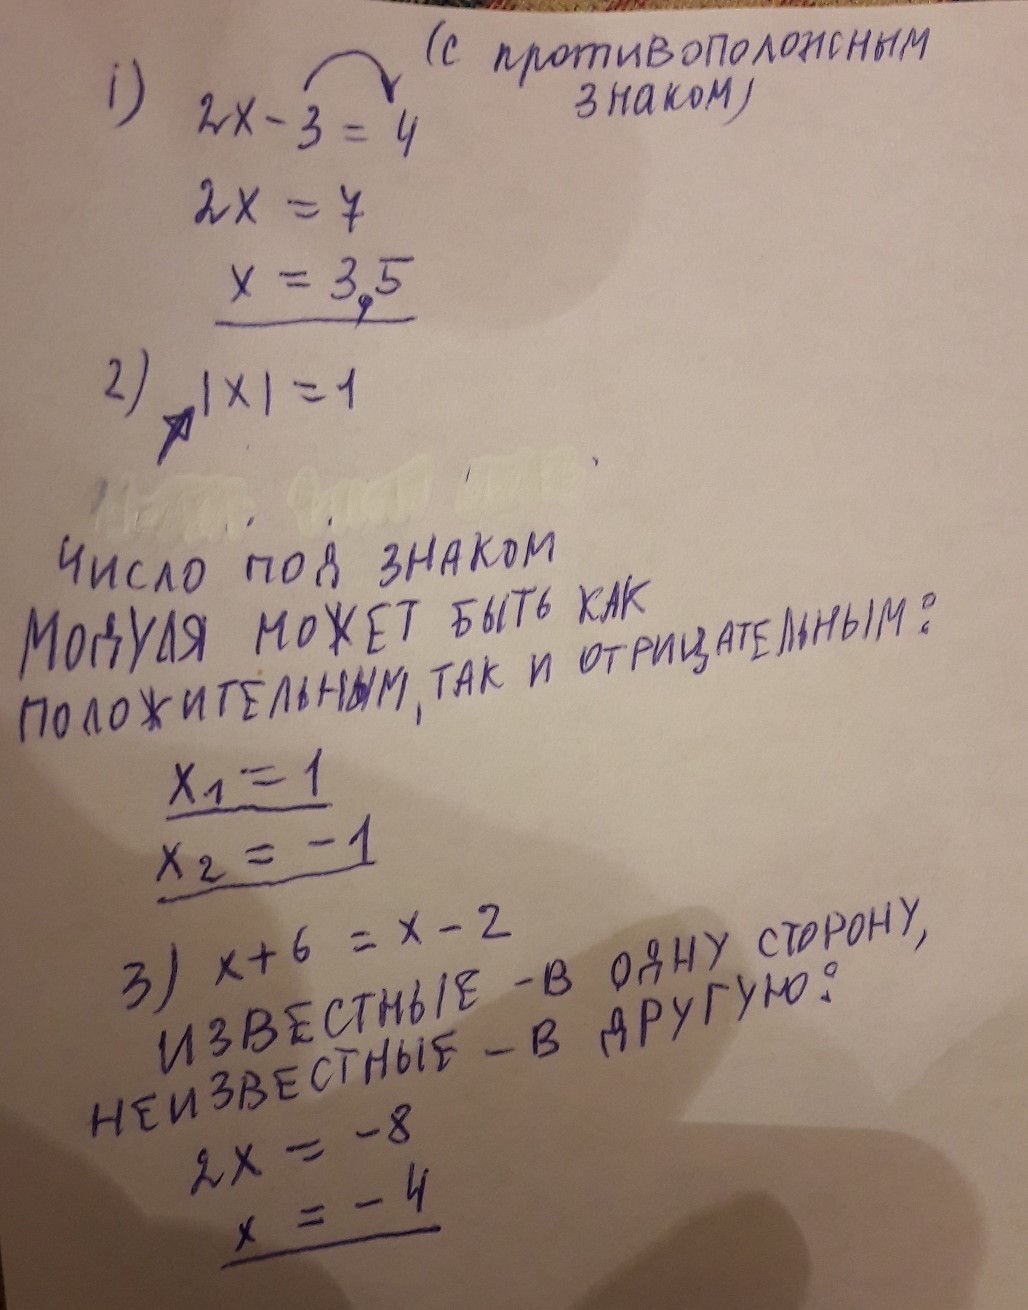 (с противоположным
знаком)
1) 2x - 3 = 4
2x = 7
x = 3,5
2) |x| = 1
ЧИСЛО ПОД ЗНАКОМ
МОДУЛЯ МОЖЕТ БЫТЬ КАК
ПОЛОЖИТЕЛЬНЫМ, ТАК И ОТРИЦАТЕЛЬНЫМ:
x1 = 1
x2 = -1
3) x + 6 = x - 2
ИЗВЕСТНЫЕ - В ОДНУ СТОРОНУ,
НЕИЗВЕСТНЫЕ - В ДРУГУЮ:
2x = -8
x = -4